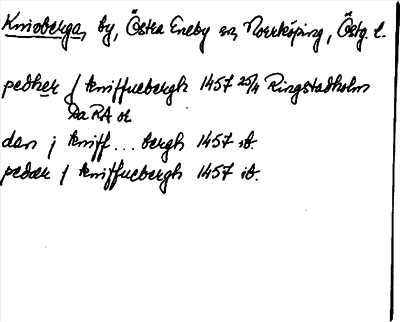 Knivberga, by, Östra Eneby sn, Norrköping, Östg. l.
pedher j kniffuebergh 1457 25/4 Ringstadholm
Da RA or
dan j kniff... bergh 1457 ib.
pedær j kniffuebergh 1457 ib.